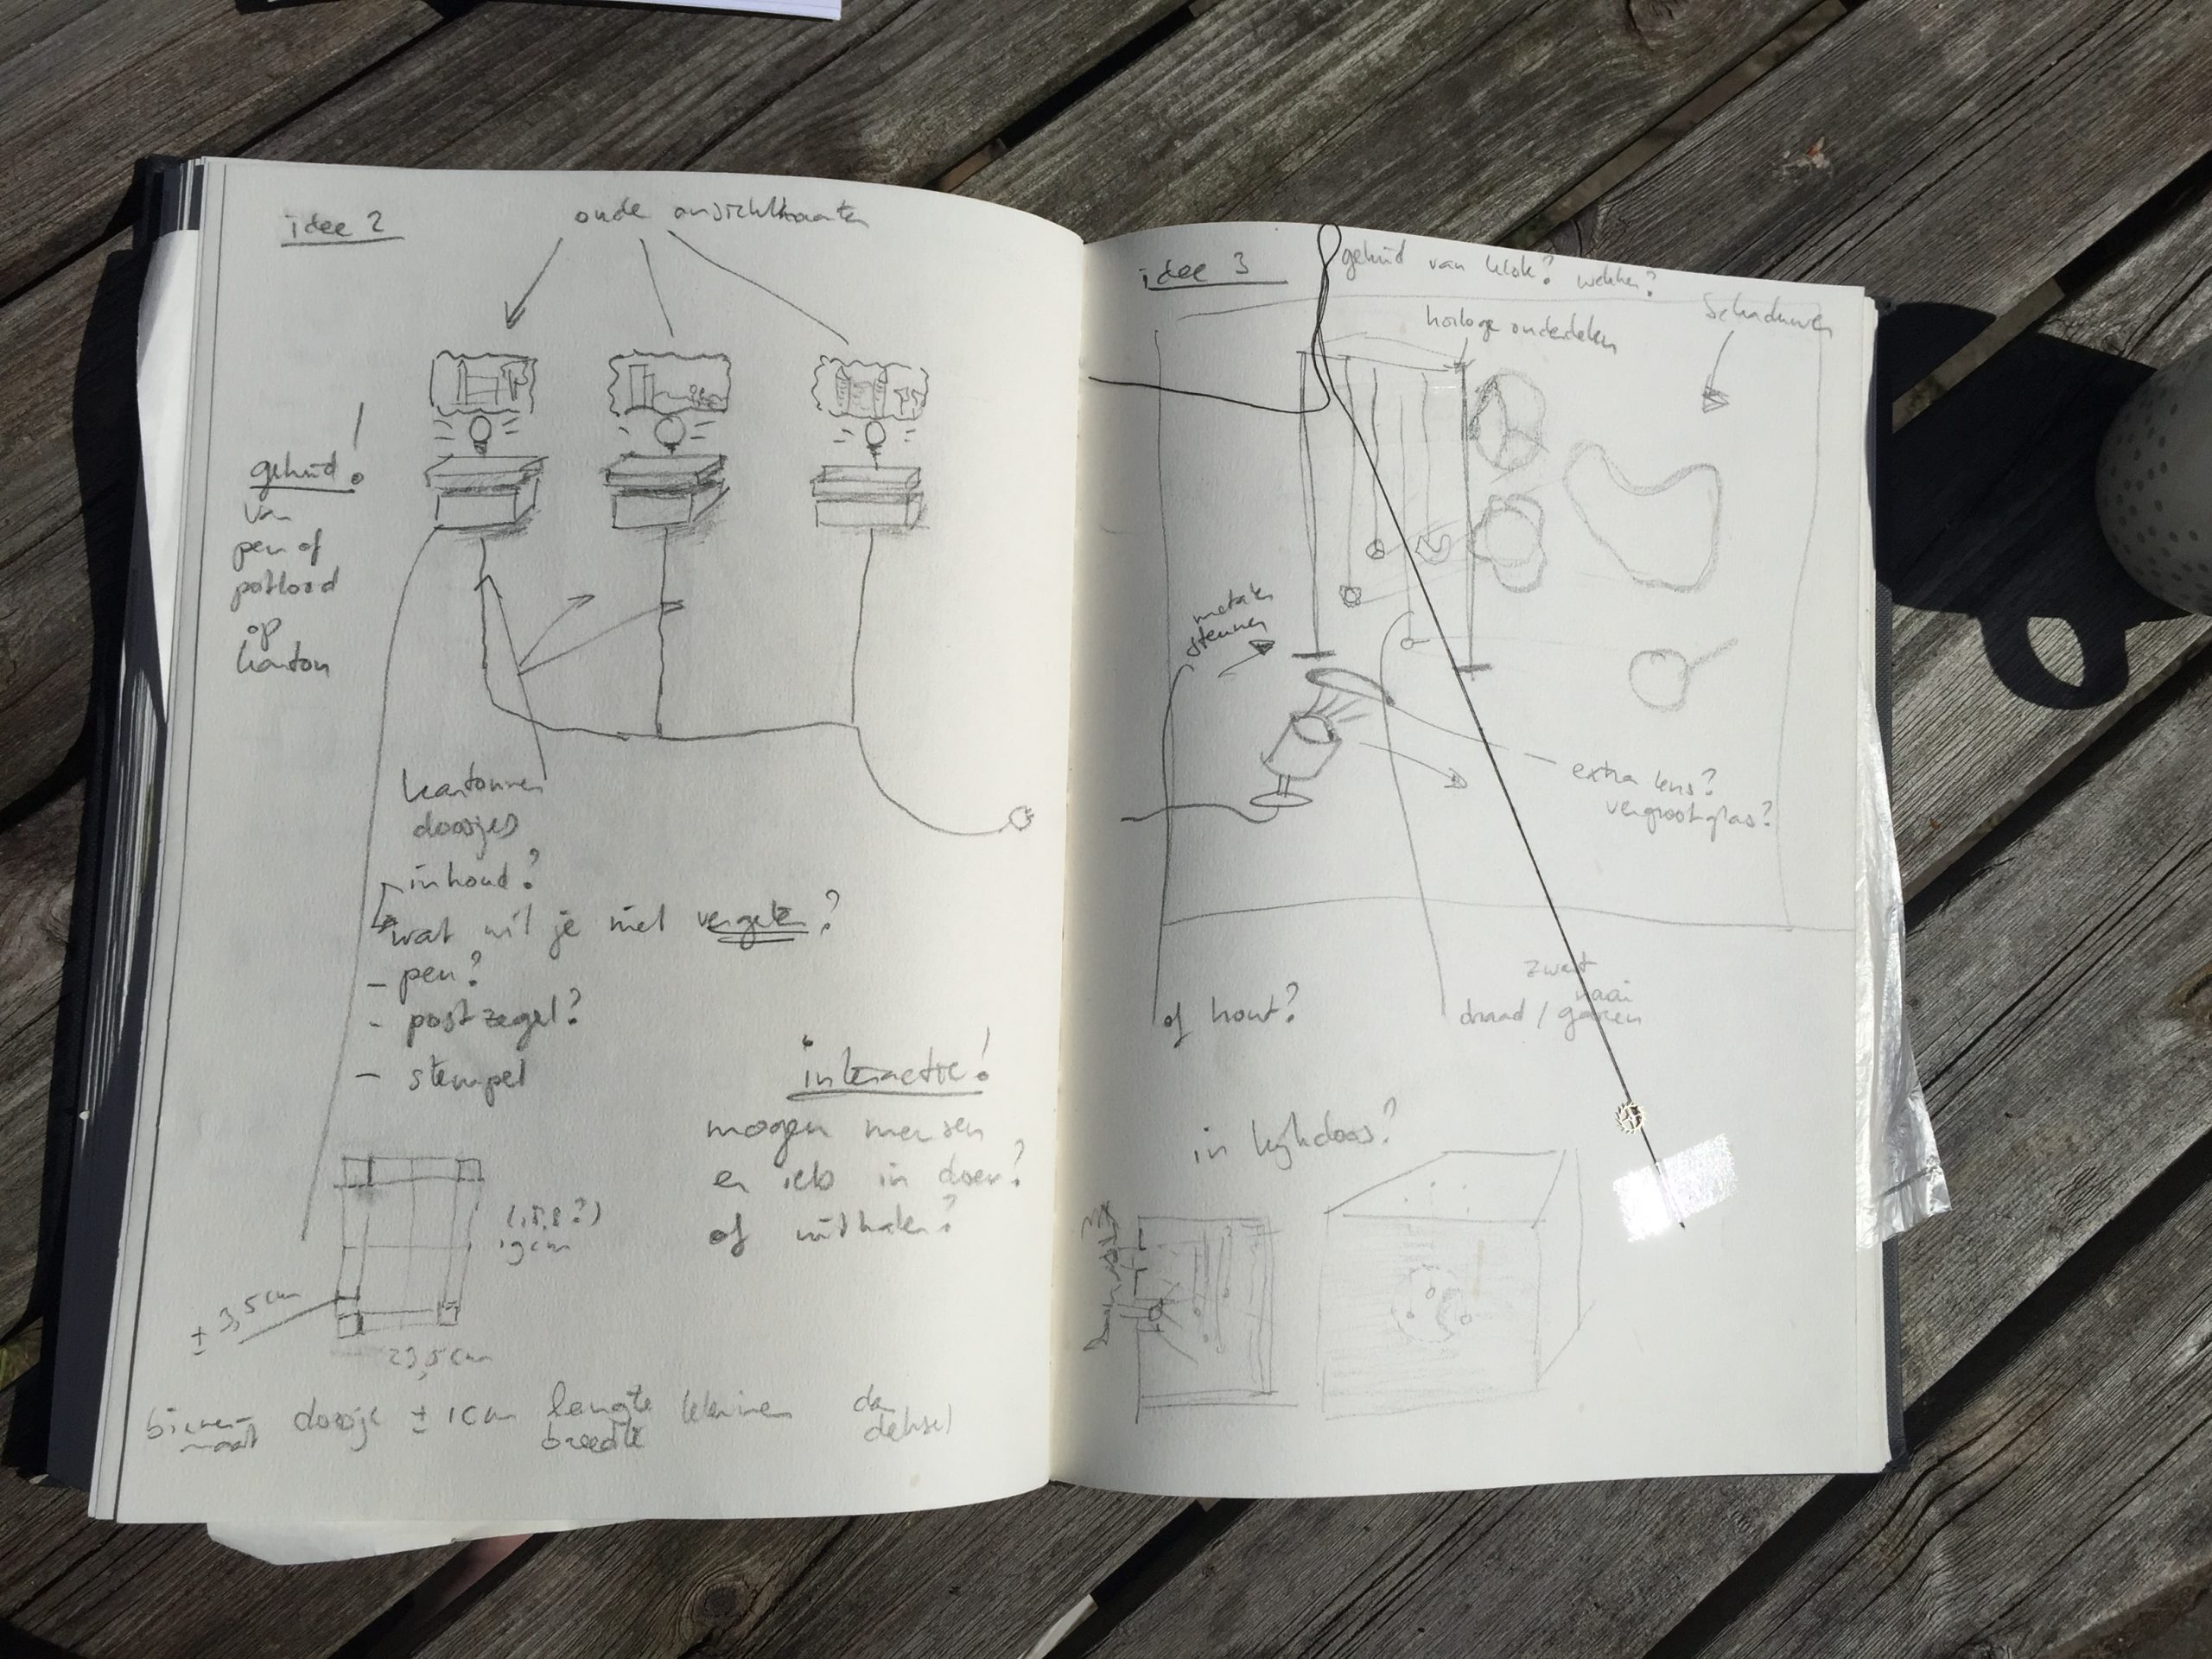 idee 2
oude ansichtkaarten
geluid!
van
pen of
potlood
op
karton
kartonnen
doosjes
inhoud?
wat wil je niet vergeten?
- pen?
- postzegel?
- stempel
interactie!
mogen mensen
er iets in doen?
of uithalen?
19 cm
± 3,5 cm
23,5 cm
binnen-
maat
doosje ± 1 cm lengte
breedte
kleiner dan
deksel
idee 3
geluid van klok? wekker?
horloge onderdelen
schaduwen
metalen
steunen
extra lens?
vergrootglas?
of hout?
zwart
naai
draad / garen
in kijkdoos?